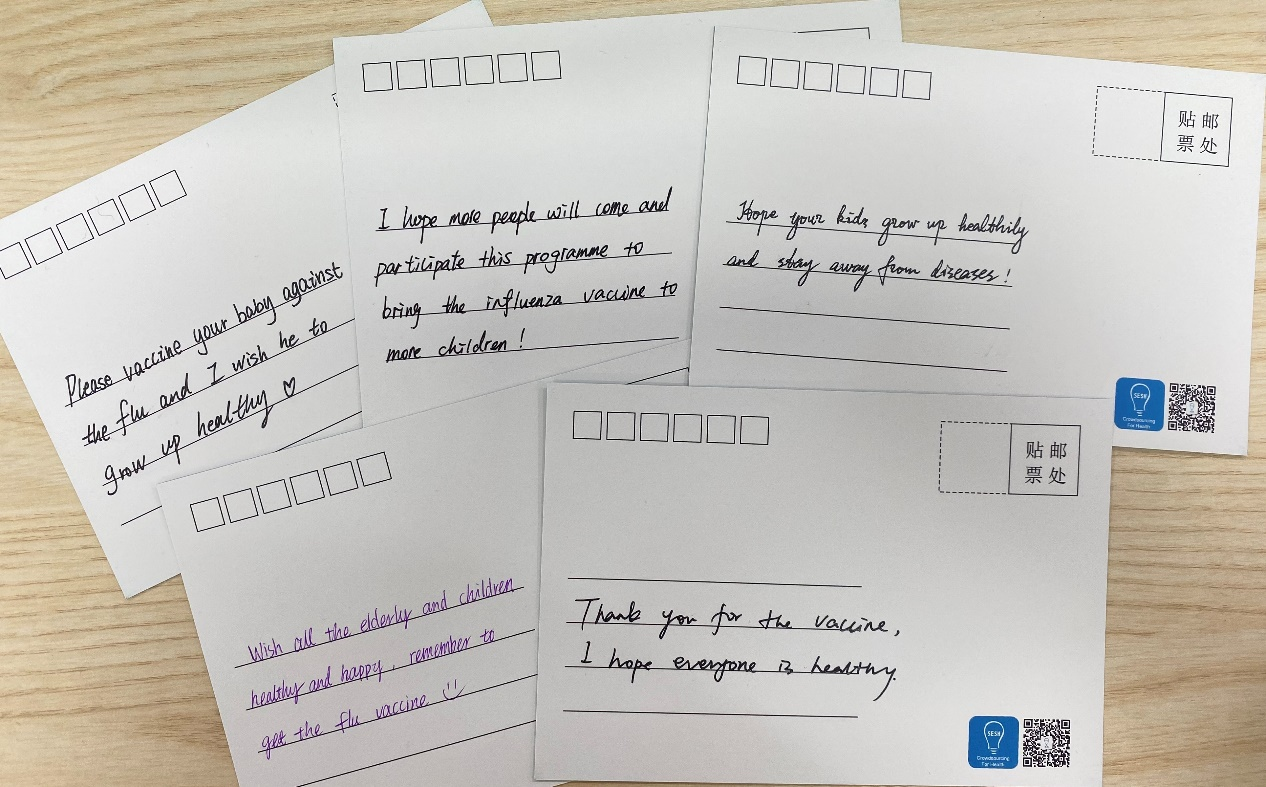 Please vaccine your baby against
the flu and I wish he to
grow up healthy ♡
I hope more people will come and
participate this programme to
bring the influenza vaccine to
more children !
贴 邮
票 处
Hope your kids grow up healthily
and stay away from diseases !
SESH
Crowdsourcing
For Health
Wish all the elderly and children
healthy and happy , remember to
get the flu vaccine
贴 邮
票 处
Thank you for the vaccine,
I hope everyone is healthy.
SESH
Crowdsourcing
For Health